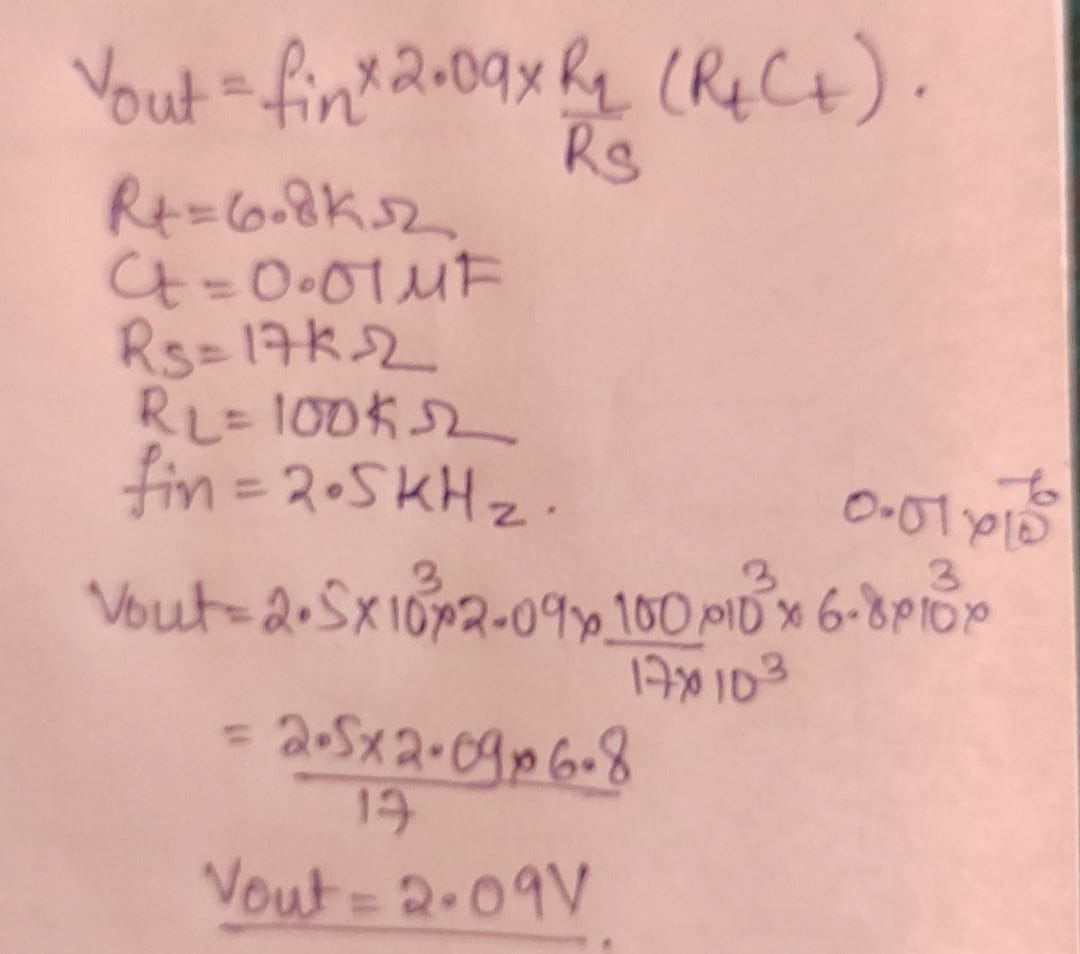 Vout = fin × 2.09 × RL/RS (RtCt).
Rt = 6.8KΩ
Ct = 0.01 μF
RS = 17KΩ
RL = 100KΩ
fin = 2.5KHz.
Vout = 2.5×10³×2.09× 100×10³/17×10³ × 6.8×10³× 0.01×10⁻⁶
= 2.5×2.09×6.8/17
Vout = 2.09V.